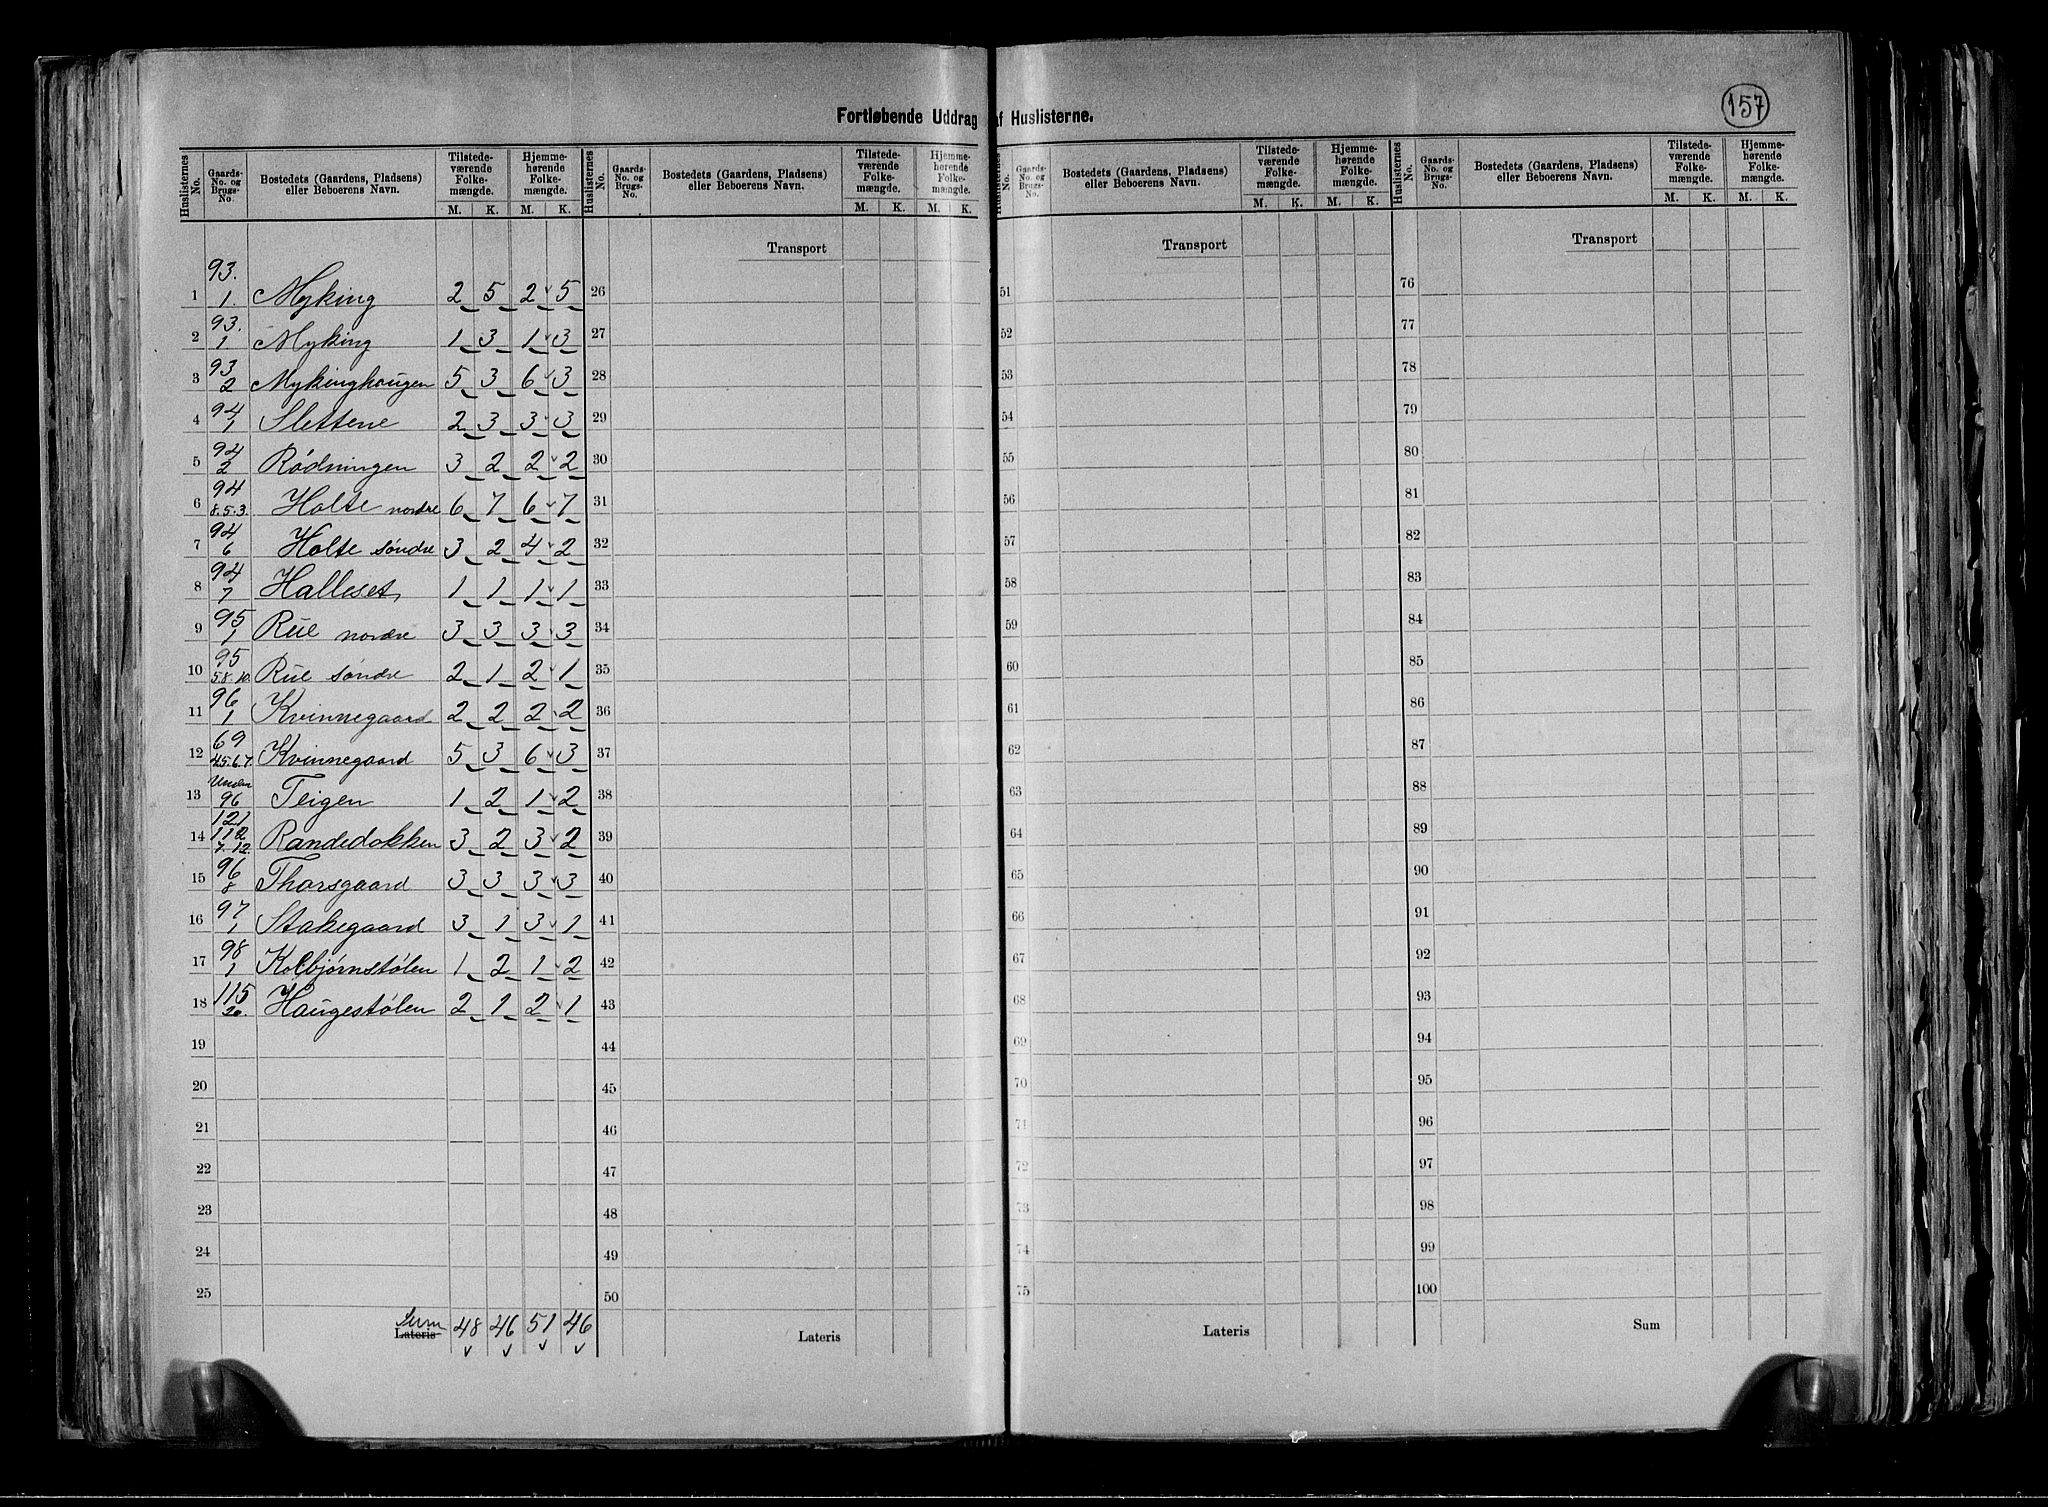 157
Fortløbende Uddrag af Huslisterne.
Huslisternes No. | Gaards-No. og Brugs-No. | Bostedets (Gaardens, Pladsens) eller Beboerens Navn. | Tilstede-værende Folke-mængde. M. K. | Hjemme-hørende Folke-mængde. M. K.
Huslisternes No. | Gaards-No. og Brugs-No. | Bostedets (Gaardens, Pladsens) eller Beboerens Navn. | Tilstede-værende Folke-mængde. M. K. | Hjemme-hørende Folke-mængde. M. K.
Huslisternes No. | Gaards-No. og Brugs-No. | Bostedets (Gaardens, Pladsens) eller Beboerens Navn. | Tilstede-værende Folke-mængde. M. K. | Hjemme-hørende Folke-mængde. M. K.
Huslisternes No. | Gaards-No. og Brugs-No. | Bostedets (Gaardens, Pladsens) eller Beboerens Navn. | Tilstede-værende Folke-mængde. M. K. | Hjemme-hørende Folke-mængde. M. K.
Transport Transport Transport
1 93. 1. Myking 2 5 2 5 26 51 76
2 93. 1 Myking 1 3 1 3 27 52 77
3 93 2 Mykinghaugen 5 3 6 3 28 53 78
4 94 1 Slettene 2 3 3 3 29 54 79
5 94 2 Rødningen 3 2 2 2 30 55 80
6 94 8.5.3. Holte nordre 6 7 6 7 31 56 81
7 94 6 Holte søndre 3 2 4 2 32 57 82
8 94 7 Halleset 1 1 1 1 33 58 83
9 95 1 Rue nordre 3 3 3 3 34 59 84
10 95 5.8.10. Rue søndre 2 1 2 1 35 60 85
11 96 1 Kvinnegaard 2 2 2 2 36 61 86
12 69 4.5.6.7. Kvinnegaard 5 3 6 3 37 62 87
13 Under 96 Teigen 1 2 1 2 38 63 88
14 121 112 7. 12. Randedokken 3 2 3 2 39 64 89
15 96 8 Thorsgaard 3 3 3 3 40 65 90
16 97 1 Stakegaard 3 1 3 1 41 66 91
17 98 1 Kolbjørnstølen 1 2 1 2 42 67 92
18 115 20. Haugestølen 2 1 2 1 43 68 93
19 44 69 94
20 45 70 95
21 46 71 96
22 47 72 97
23 48 73 98
24 49 74 99
25 50 75 100
Sum Lateris 48 46 51 46 Lateris Lateris Sum